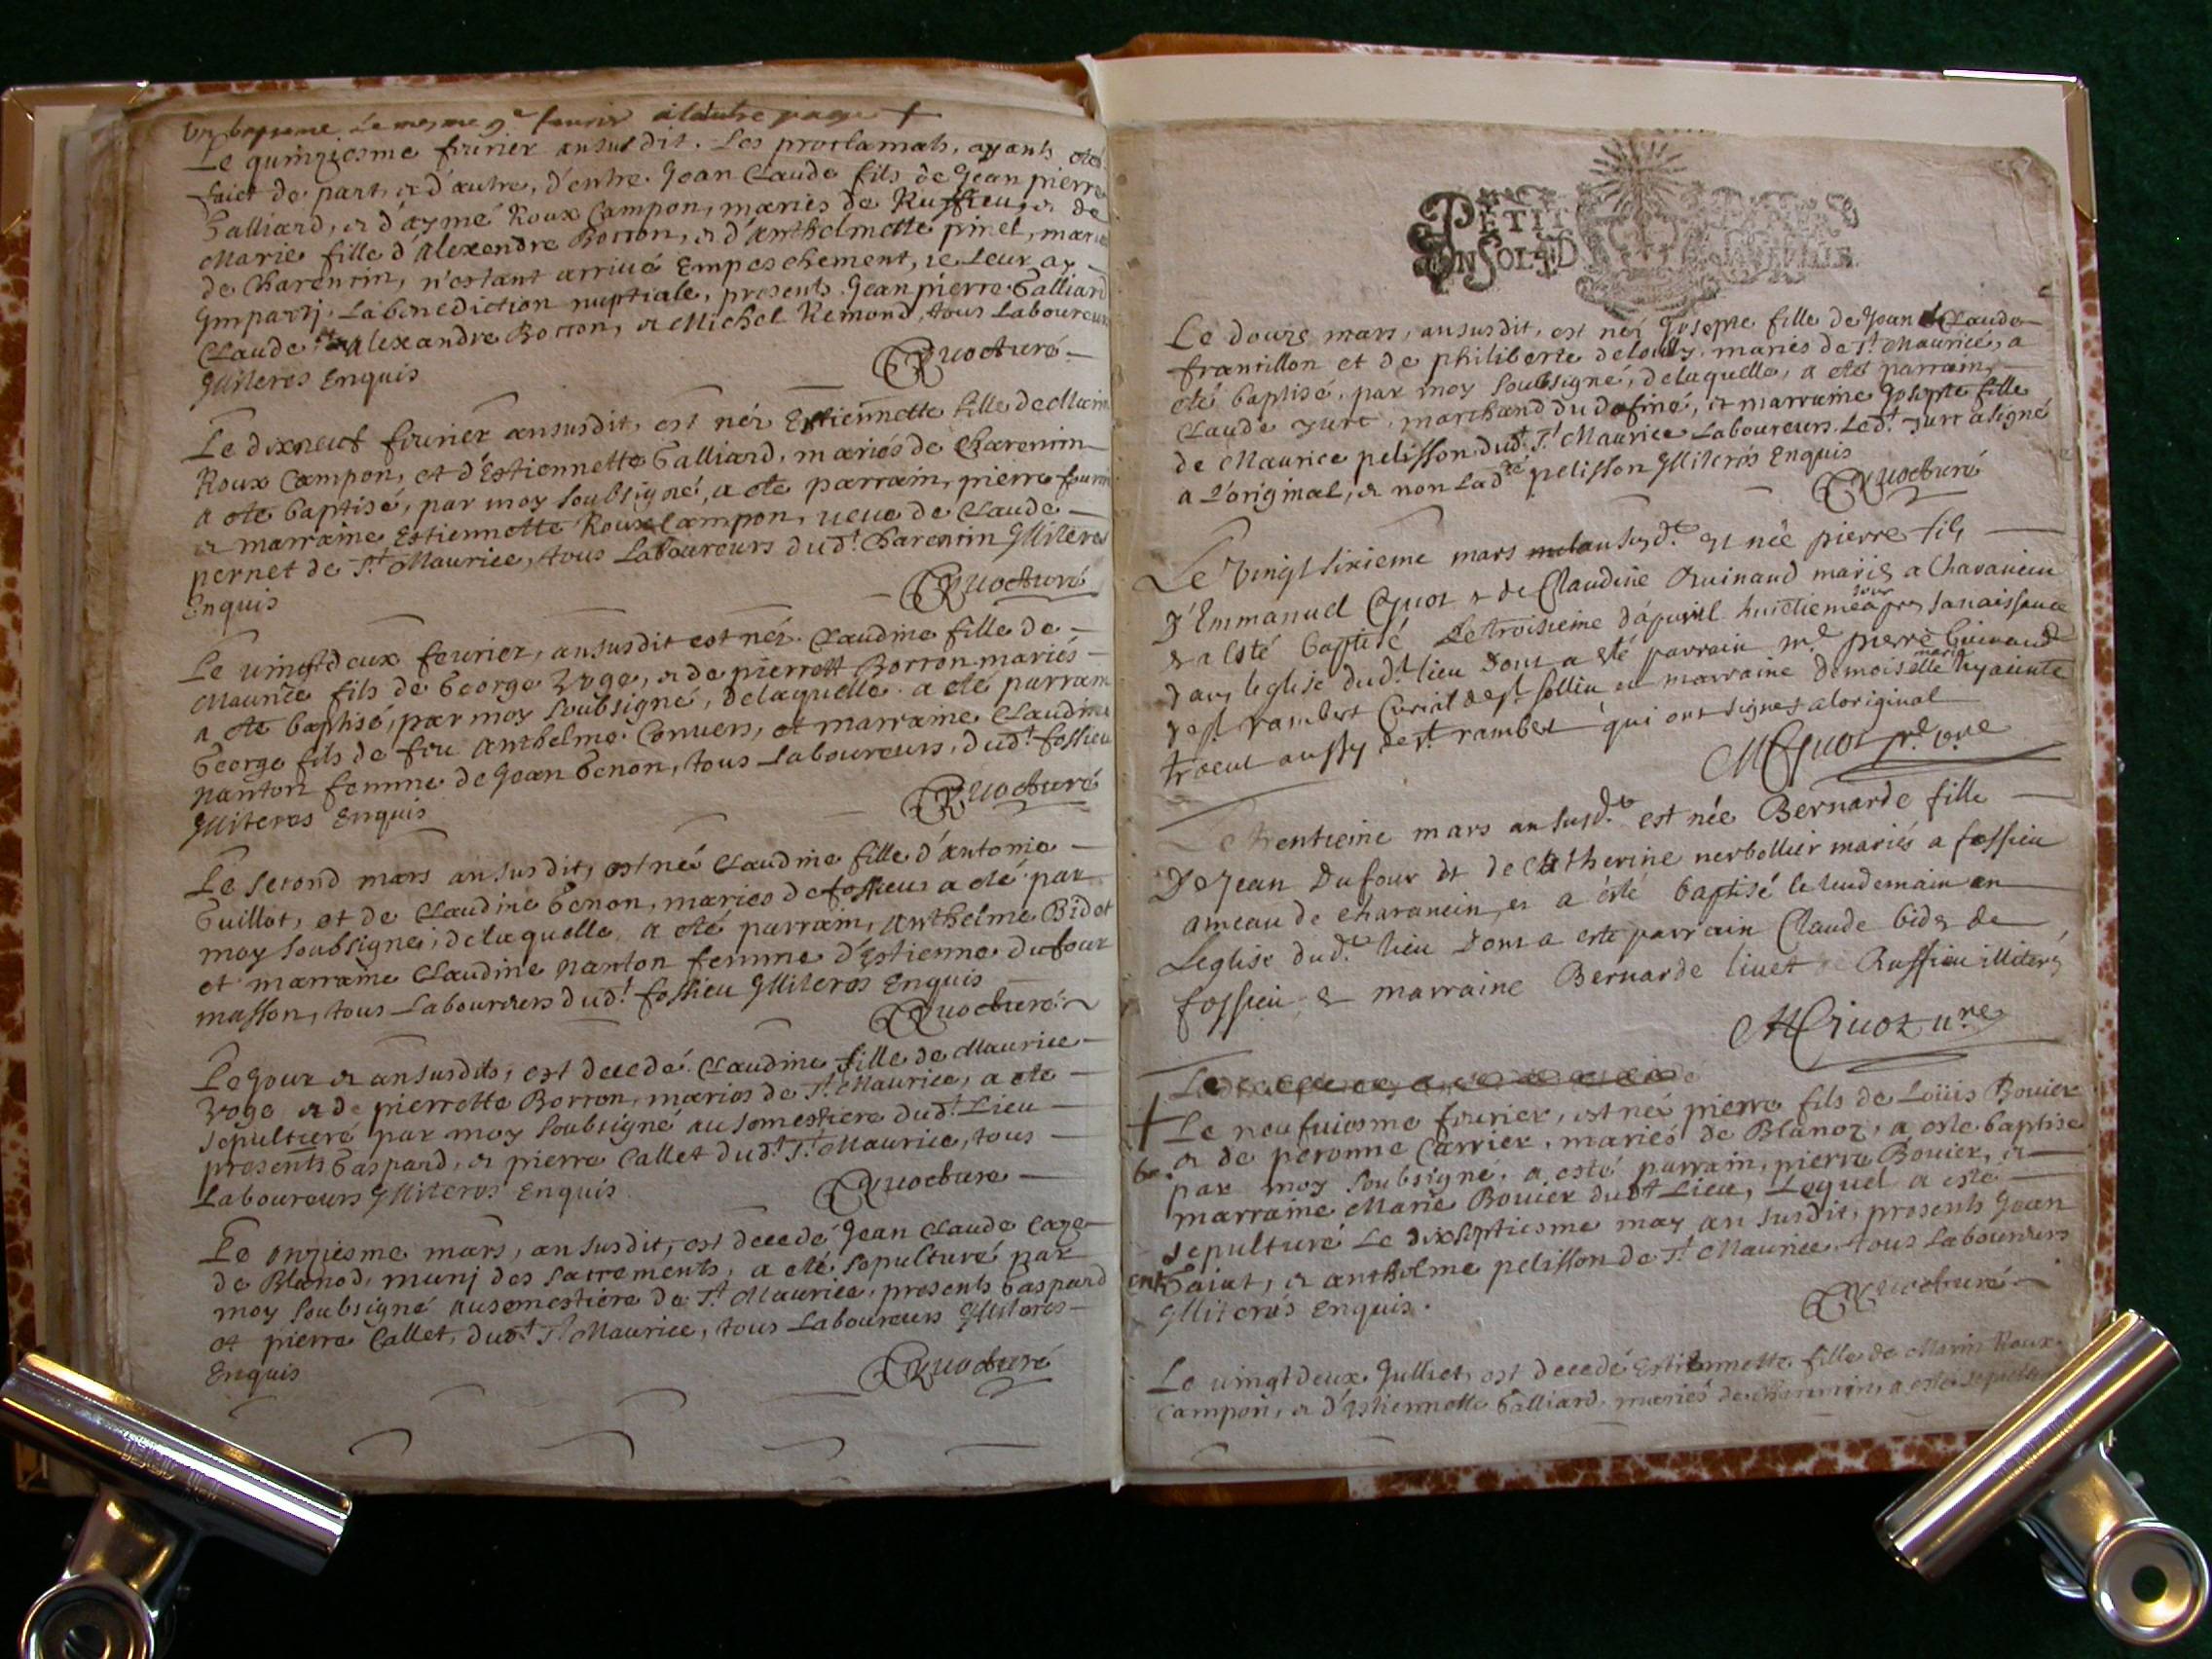 Un baptesme le mesme 9e feurier a l'autre page +
Le quinziesme feurier an susdit. Les proclamats, ayants eté
faict de part, et d'autre, d'entre Jean Claude fils de Jean pierre
Galliard, et d'aymé Roux Campon, mariés de Ruffieu, et de
Marie fille d'Alexendre Borron, et d'Anthelmette pinet, mariés
de Charencin, n'estant arriué Empeschement, ie Leur ay
Imparty La benediction nuptiale, presents Jean pierre Galliard
Claude Alexandre Borron, et Michel Remond, tous Laboureurs
Illiteres Enquis
Le dixneuf feurier an susdit, est née Estiennette fille de Marin
Roux Campon, et d'Estiennette Galliard, mariés de Charencin
a eté baptisé, par moy soubsigné, a eté parrain, pierre
et marraine Estiennette Roux Campon, ueue de Claude
pernet de St Maurice, tous Laboureurs dudt Charencin Illiteres
Enquis
Le uingtdeux feurier, an susdit est née Claudine fille de
Maurice fils de George et de pierrette Borron mariés
a eté baptisé, par moy soubsigné, delaquelle a eté parrain
George fils de feu Anthelme Conuers, et marraine Claudine
nanton femme de Jean Genon, tous Laboureurs, dudt fossieu
Illiteres Enquis
Le second mars an susdit, est né Claudine fille d'antonie
Guillot, et de Claudine Genon, mariés de fossieu a eté par
moy soubsigné, delaquelle a eté parrain, Anthelme Bidot
et marraine Claudine nanton femme d'Estienne dufour
masson, tous Laboureurs dudt fossieu Illiteres Enquis
Le Jour et an susdits, est decedé Claudine fille de Maurice
et de pierrette Borron, mariés de St Maurice, a eté
sepulturé par moy soubsigné au semestiere dudt Lieu
presents Gaspard, et pierre Callet dudt St Maurice, tous
Laboureurs Illiteres Enquis
Le onziesme mars, an susdit, est decedé Jean Claude Caze
de Blanod, munj des sacrements, a eté sepulturé par
moy soubsigné au semestiere de St Maurice, presents Gaspard
et pierre Callet, dudt St Maurice, tous Laboureurs Illiteres
Enquis
PETIT
UN SOL
Le douze mars, an susdit, est née Josepte fille de Jean Claude
françillon et de philiberte mariés de St Maurice, a
eté baptisé, par moy soubsigné, delaquelle, a eté parrain,
Claude yurt marchand du dofiné, et marraine Josepte fille
de Maurice pelisson dudt St Maurice Laboureurs. Ledt yurt a signé
a L'original, et non Ladte pelisson Illiterés Enquis
Le Vingt sixieme mars an susdt est née pierre fils
d'Emmanuel et de Claudine Guinaud mariés a Charancin
et a esté baptisé Le troisieme d'apuril huictieme jour apres sa naissance
dans leglise dudt lieu dont a esté parrain mr pierre Guinaud
de st rambert Curial de st sollin et marraine demoiselle marie hyacinte
aussy de st rambert qui ont signés a loriginal
Le trentieme mars an susdt est née Bernarde fille
De Jean Dufour et de Catherine nerbollier mariés a fossieu
ameau de charancin et a esté baptisé le lendemain en
Leglise dudt lieu dont a esté parrain Claude bidet de
fossieu et marraine Bernarde liuet de Ruffieu illiterés
+ Le neufuiesme feurier, est né pierre fils de Loüis Bouier
et de peronne Carrier, mariés de Blanoz, a esté baptisé
par moy soubsigné, a esté parrain, pierre Bouier, et
marraine Marie Bouier dudt Lieu, Lequel a esté
sepulturé Le dixseptiesme may an susdit, presents Jean
et anthelme pelisson de St Maurice, tous Laboureurs
Illiterés Enquis.
Le uingtdeux Julliet, est decedé Estiennette fille de Marin Roux
Campon, et d'Estiennette Galliard, mariés de Charencin, a esté